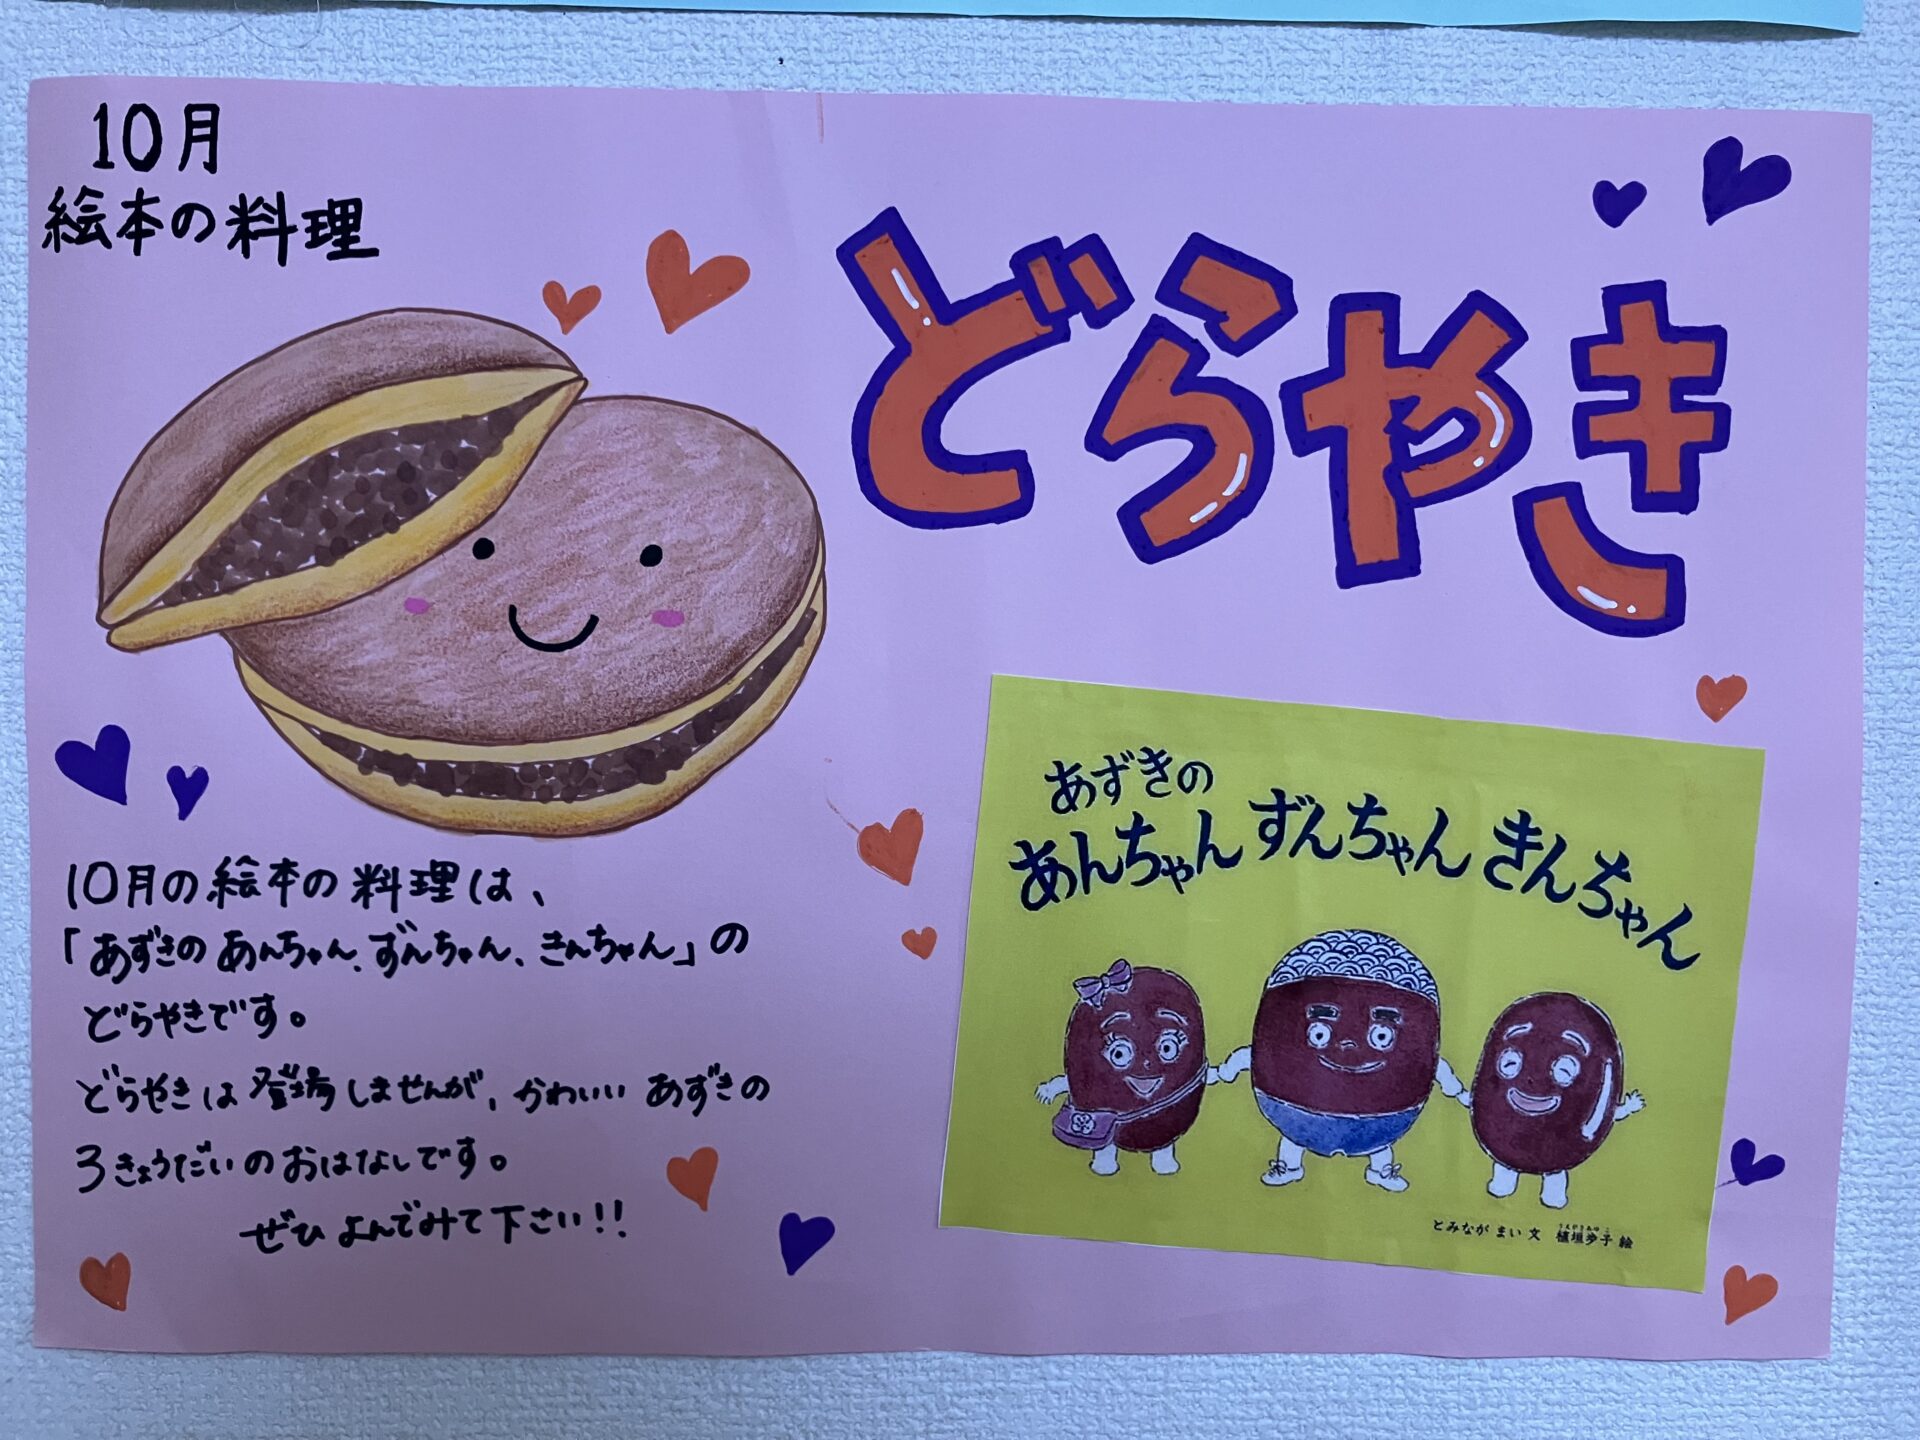 10月
絵本の料理
どらやき
10月の絵本の料理は、
「あずきの あんちゃん、ずんちゃん、きんちゃん」の
どらやきです。
どらやきは登場しませんが、かわいい あずきの
3きょうだいのおはなしです。
ぜひ よんでみて下さい!!
あずきの
あんちゃん ずんちゃん きんちゃん
とみなが まい 文 植垣歩子 絵